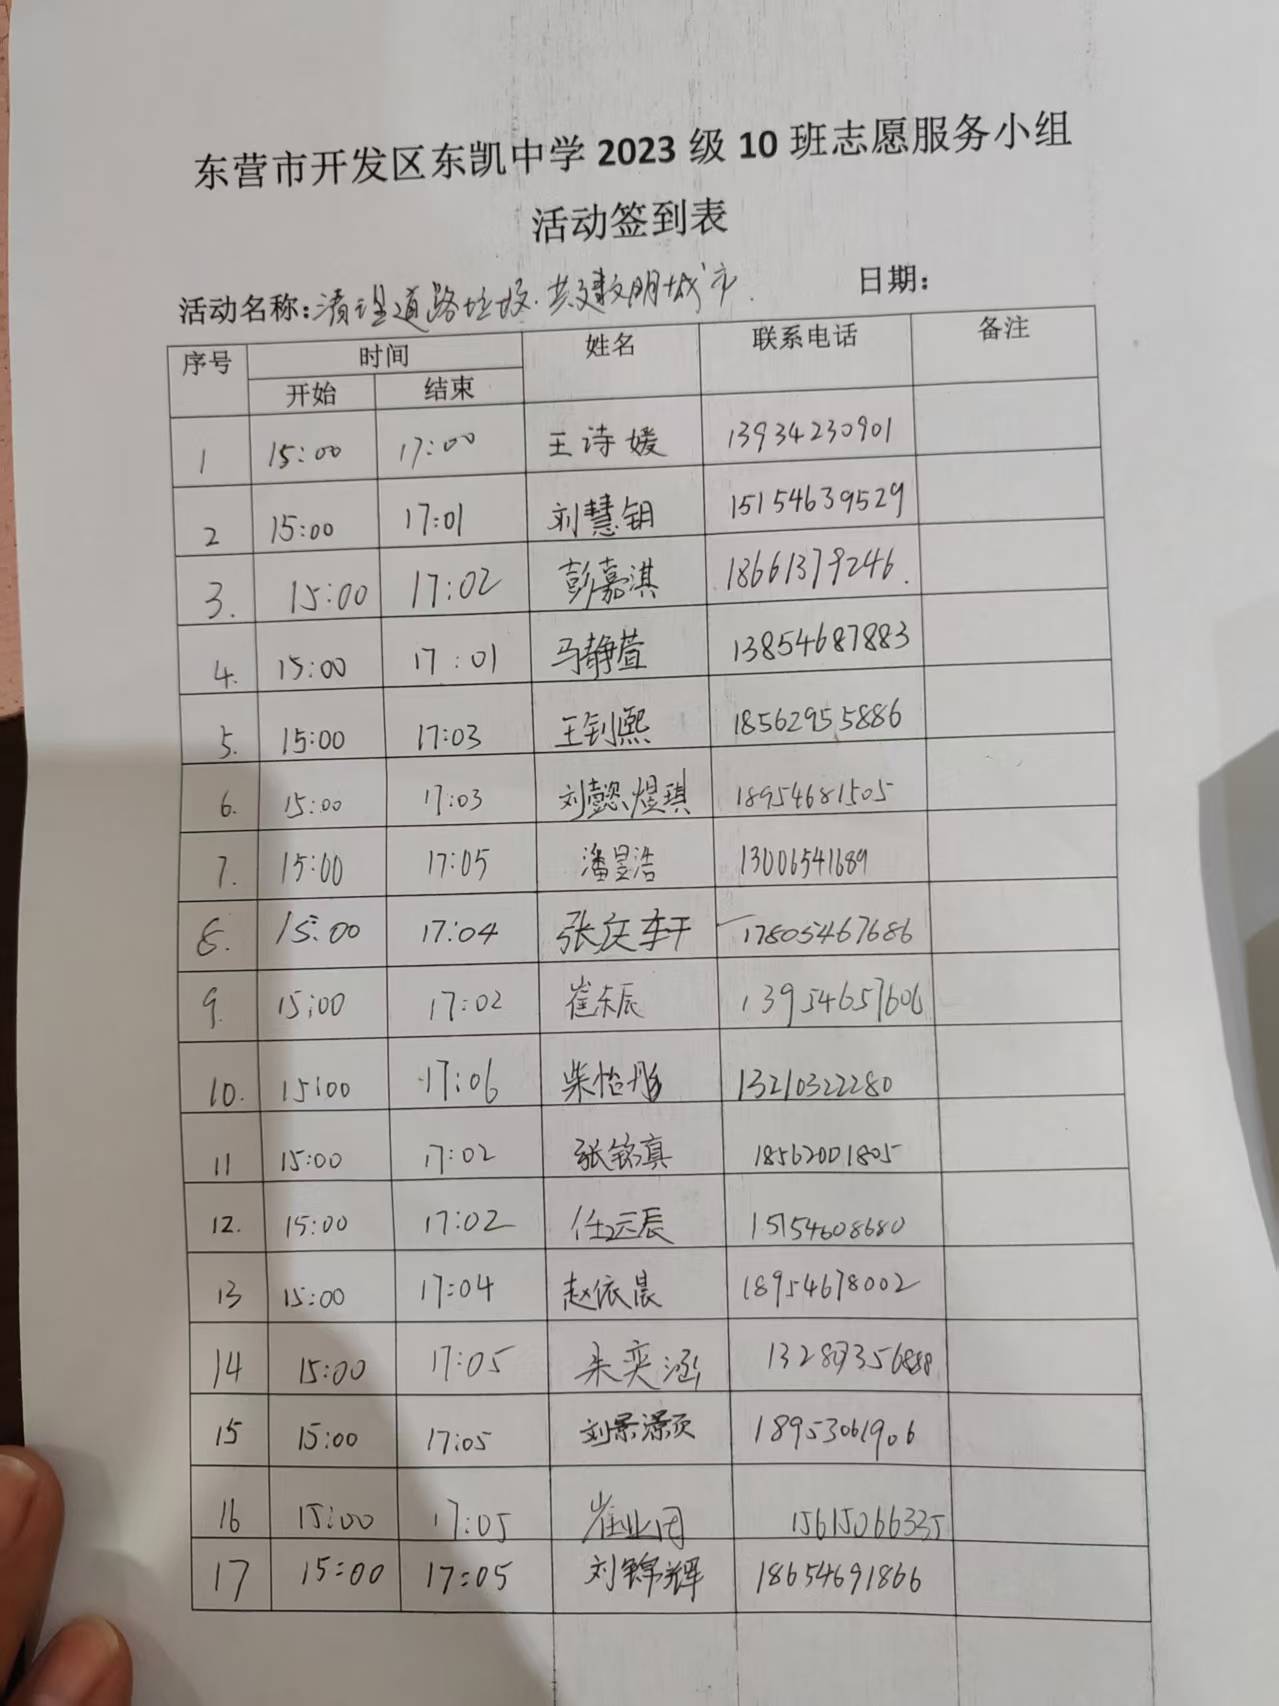 东营市开发区东凯中学 2023 级 10 班志愿服务小组
活动签到表
活动名称:清理道路垃圾.共建文明城市. 日期:
序号 时间 姓名 联系电话 备注
开始 结束
1 15:00 17:00 王诗媛 13934230901
2 15:00 17:01 刘慧钥 15154639529
3. 15:00 17:02 彭嘉淇 18661379246.
4. 15:00 17:01 马静萱 13854687883
5. 15:00 17:03 王钊熙 18562955886
6. 15:00 17:03 刘懿煜琪 18954681505
7. 15:00 17:05 潘昱浩 13006541689
8. 15:00 17:04 张庆轩 17805467686
9. 15:00 17:02 崔东辰 13954657606
10. 15:00 17:06 柴怡彤 13210322280
11 15:00 17:02 张铭真 18562001805
12. 15:00 17:02 任云辰 15154608680
13 15:00 17:04 赵依晨 18954678002
14 15:00 17:05 朱奕涵
15 15:00 17:05 刘景灏 18953061906
16 15:00 17:05 崔业 15615066335
17 15:00 17:05 刘锦辉 18654691866